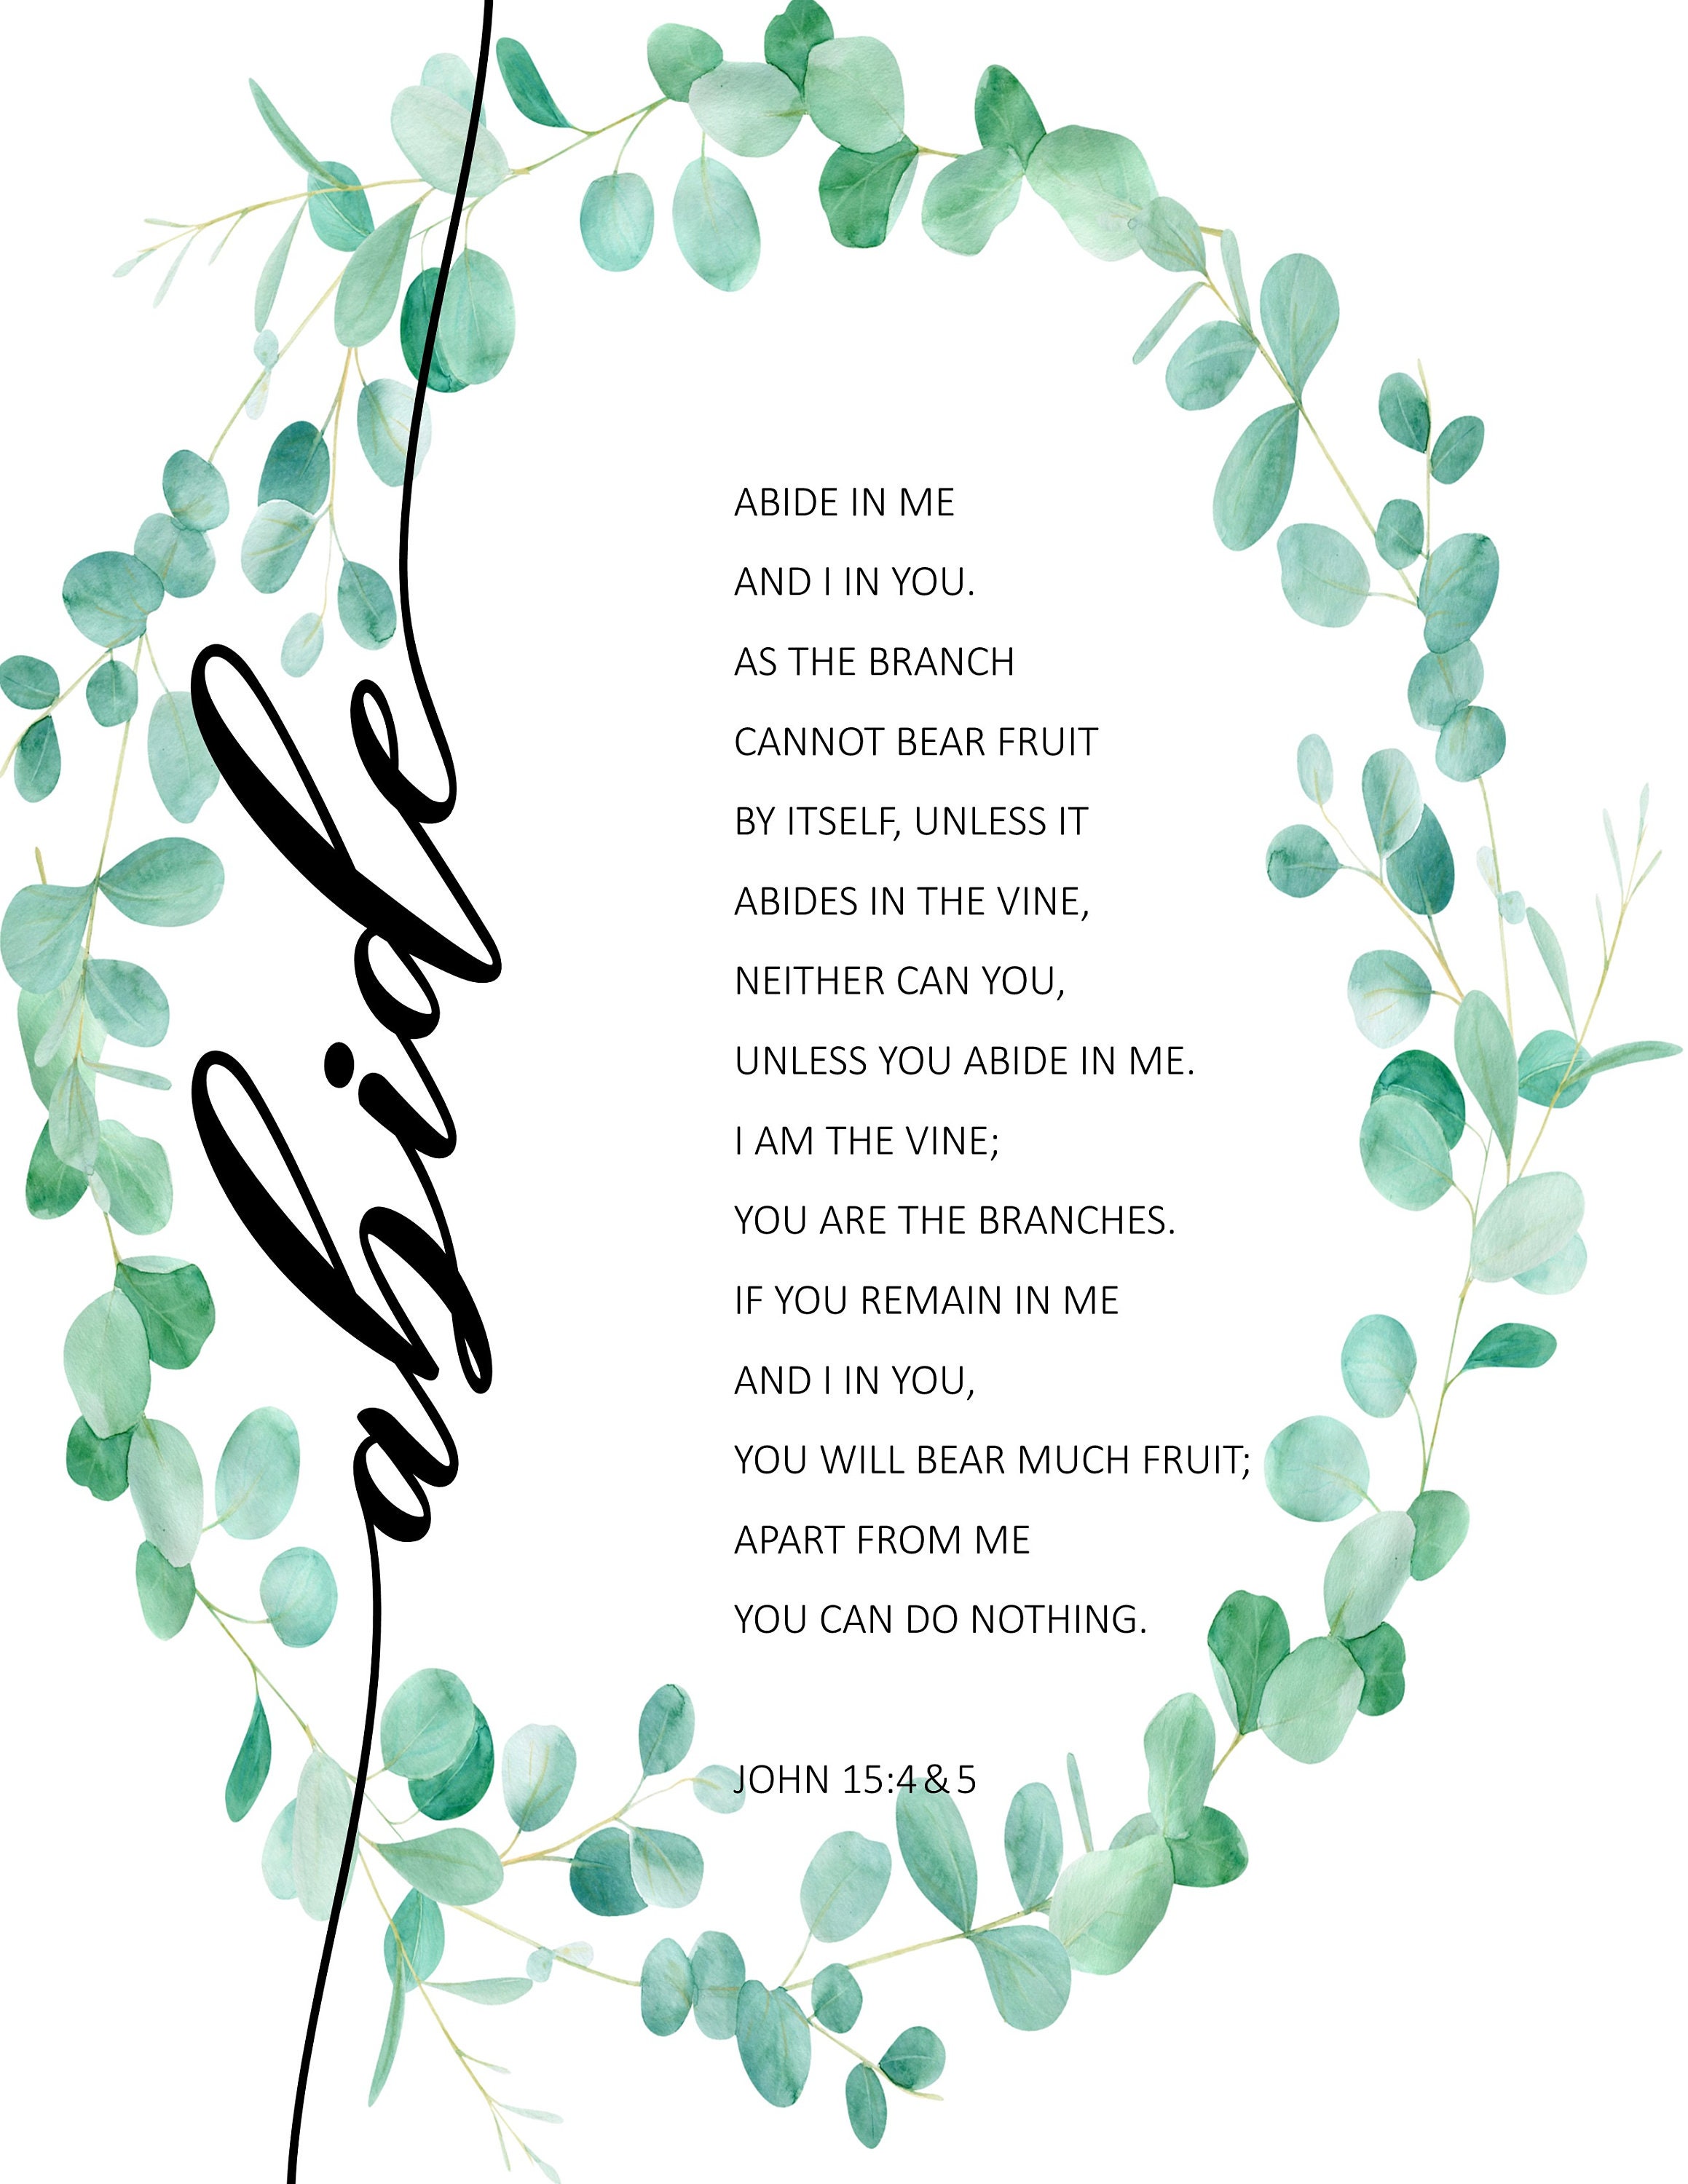 abide
ABIDE IN ME
AND I IN YOU.
AS THE BRANCH
CANNOT BEAR FRUIT
BY ITSELF, UNLESS IT
ABIDES IN THE VINE,
NEITHER CAN YOU,
UNLESS YOU ABIDE IN ME.
I AM THE VINE;
YOU ARE THE BRANCHES.
IF YOU REMAIN IN ME
AND I IN YOU,
YOU WILL BEAR MUCH FRUIT;
APART FROM ME
YOU CAN DO NOTHING.
JOHN 15:4 & 5